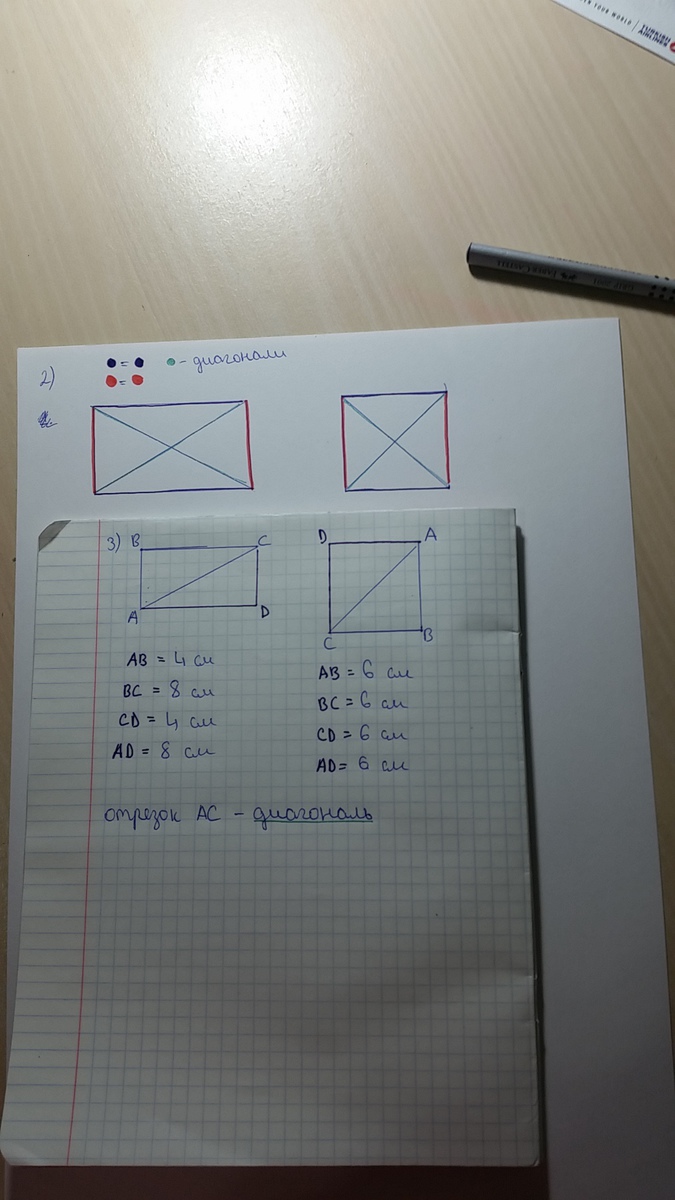 YOUR WORLD
TURKISH
AIRLINES
FABER-CASTELL
GRIP 2001
2) = - диагонали
=
3) B C
A D
D A
C B
AB = 4 см
BC = 8 см
CD = 4 см
AD = 8 см
AB = 6 см
BC = 6 см
CD = 6 см
AD = 6 см
отрезок AC - диагональ